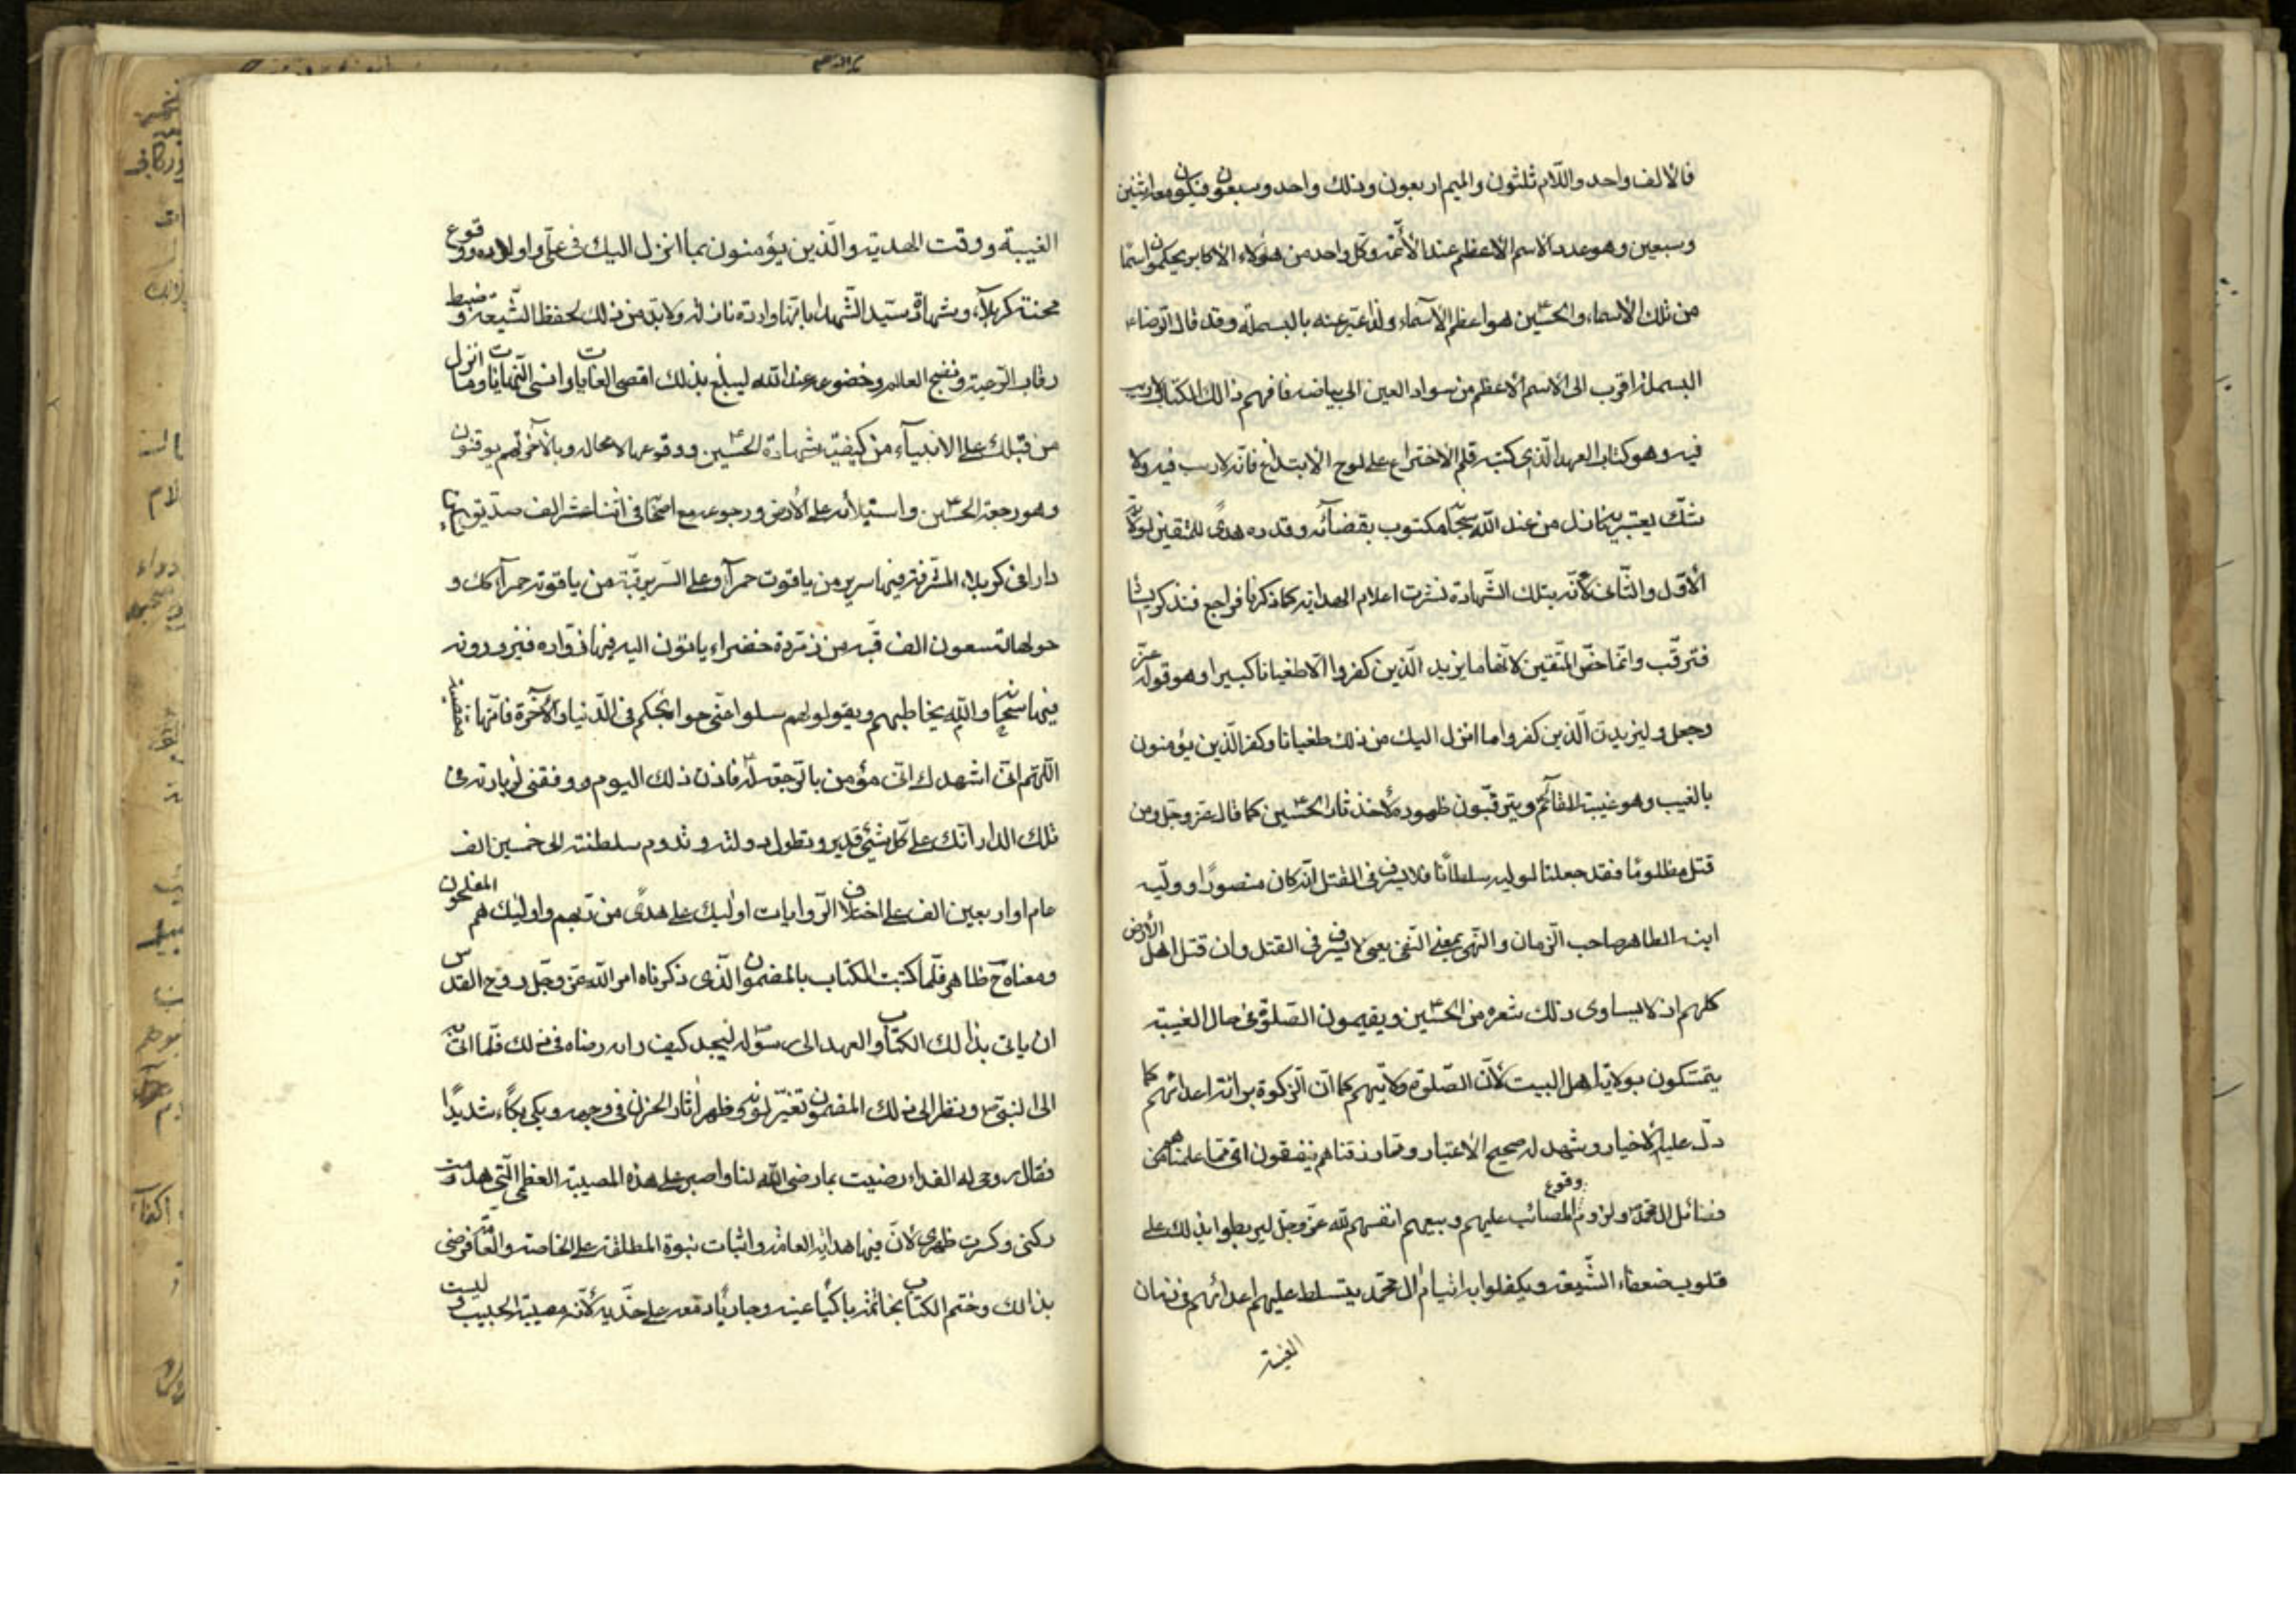 فالالف واحد واللّام ثلثون والميم اربعون وذلك واحد وسبعون فيكون معه اثنين
وسبعين وهو عدد الاسم الاعظم عند الأئمّة وكلّ واحد من هؤلاء الاكابر يحكمون اسمًا
من تلك الأسماء والحسين ع هو اعظم الأسماء ولذا عبّر عنه بالبسملة وقد قال الرّضا ع
البسملة اقرب الى الاسم الاعظم من سواد العين الى بياضه فافهم ذالك الكتاب لا ريب
فيه وهو كتاب العهد الّذى كتبه قلم الاختراع على لوح الأبتداع فانّه لا ريب فيه ولا
شكّ يعتريه نازل من عند الله سبحانه مكتوب بقضائه وقدره هدىً للمتّقين لولاية
الأوّل والثّانى لأنّه بتلك الشّهادة نشرت اعلام الهداية كما ذكرنا فراجع فتذكر
فترقّب وانّما خصّ المتّقين لانّها ما يزيد الّذين كفروا الّا طغيانا كبيرا وهو قوله عزّ
وجعل وليزيدنّ الّذين كفروا ما انزل اليك من ذلك طغيانا وكفرا الّذين يؤمنون
بالغيب وهو غيبة القائم ويترقّبون ظهوره لأخذ ثار الحسين ع كما قال عزّ وجلّ ومن
قتل مظلومًا فقد جعلنا لوليه سلطانًا فلا يسرف فى القتل انّه كان منصورًا ووليّه
ابنه الطاهر صاحب الزّمان والنّهى بمعنى النّفى يعنى لا يسرف فى القتل وان قتل اهل الأرض
كلهم اذ لا يساوى ذلك شعره من الحسين ع ويقيمون الصّلوة فى حال الغيبة
يتمسّكون بولاية اهل البيت لأنّ الصّلوة ولايتهم كما انّ الزكوة برائة اعدائهم كما
دلّ عليه الاخبار وشهد له صحيح الاعتبار وممّا رزقناهم ينفقون اى ممّا علمناهم من
فضائل ال محمّد ص ولزوم وقوع المصائب عليهم وبيعهم انفسهم لله عزّ وجلّ ليربطوا بذلك على
قلوب ضعفاء الشّيعة ويكفلوا به ايتام ال محمّد بتسلط عليهم اعدائهم فى زمان
الغيبة
الغيبة ووقت الهدية والّذين يؤمنون بما انزل اليك فى علىّ واولاده ووقوع
محنة كربلاء وشهادة سيّد الشّهداء بانّها واردة نازلة ولا بدّ من ذلك لحفظ الشّيعة وضبط
رقاب الرّعية ونضج العالم وخضوعه عند الله ليبلغ بذلك اقصى الغايات واسنى النّهايات وما انزل
من قبلك على الانبياء من كيفيّة شهادة الحسين ع ووقوعها لا محالة وبالآخرة هم يوقنون
وهو رجعة الحسين ع واستيلائه على الأرض ورجوعه مع اصحابه فى اثنا عشر الف صدّيق
دارا فى كربلاء المشرفة فيها سرير من ياقوت حمراء وعلى السّرير قبّة من ياقوتة حمراء كك و
حولها تسعون الف قبّة من زمرّدة خضراء ياتون اليه فيها زوّاره فيزورونه
فيها والله سبحانه يخاطبهم ويقول لهم سلوا عنّى حوائجكم فى الدّنيا والآخرة فانّها
اللّهم انّى اشهدك انّى مؤمن بالرّجعة له فاذن ذلك اليوم ووفقنى لزيارته فى
تلك الدار انّك على كلّ شيئى قدير وتطول دولته وتدوم سلطنته الى خمسين الف
عام او اربعين الف على اختلاف الرّوايات اولئيك على هدىً من ربّهم واولئيك هم المفلحون
ومعناه ح ظاهر فلمّا كتبت الكتاب بالمضمون الّذى ذكرناه امر الله عزّ وجلّ روح القدس
ان ياتى بذالك الكتاب والعهد الى رسوله ص ليجد كيف رضاه فى ذلك فلمّا اتى به
الى النبىّ ص ونظر الى ذلك المضمون تغيّر لونه وظهر اثار الحزن فى وجهه وبكى بكاء شديدًا
فقال روحى له الفداء رضيت بما رضى الله لنا واصبر على هذه المصيبة العظمى الّتى هدمت
ركنى وكسرت ظهرى لأنّ فيها هداية العامّة واثبات نبوة المطلقة على الخاصّة والعامّة فرضى
بذالك وختم الكتاب بخاتمه باكيًا عينه وجاريًا دمعه على خدّيه لأنّه مصيبة الحبيب وليست